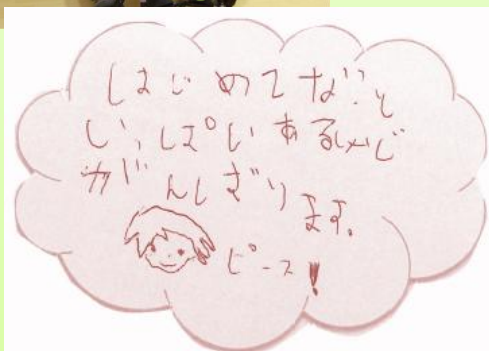 はじめてなこと
いっぱいあるけど
がんばります。
ピース!